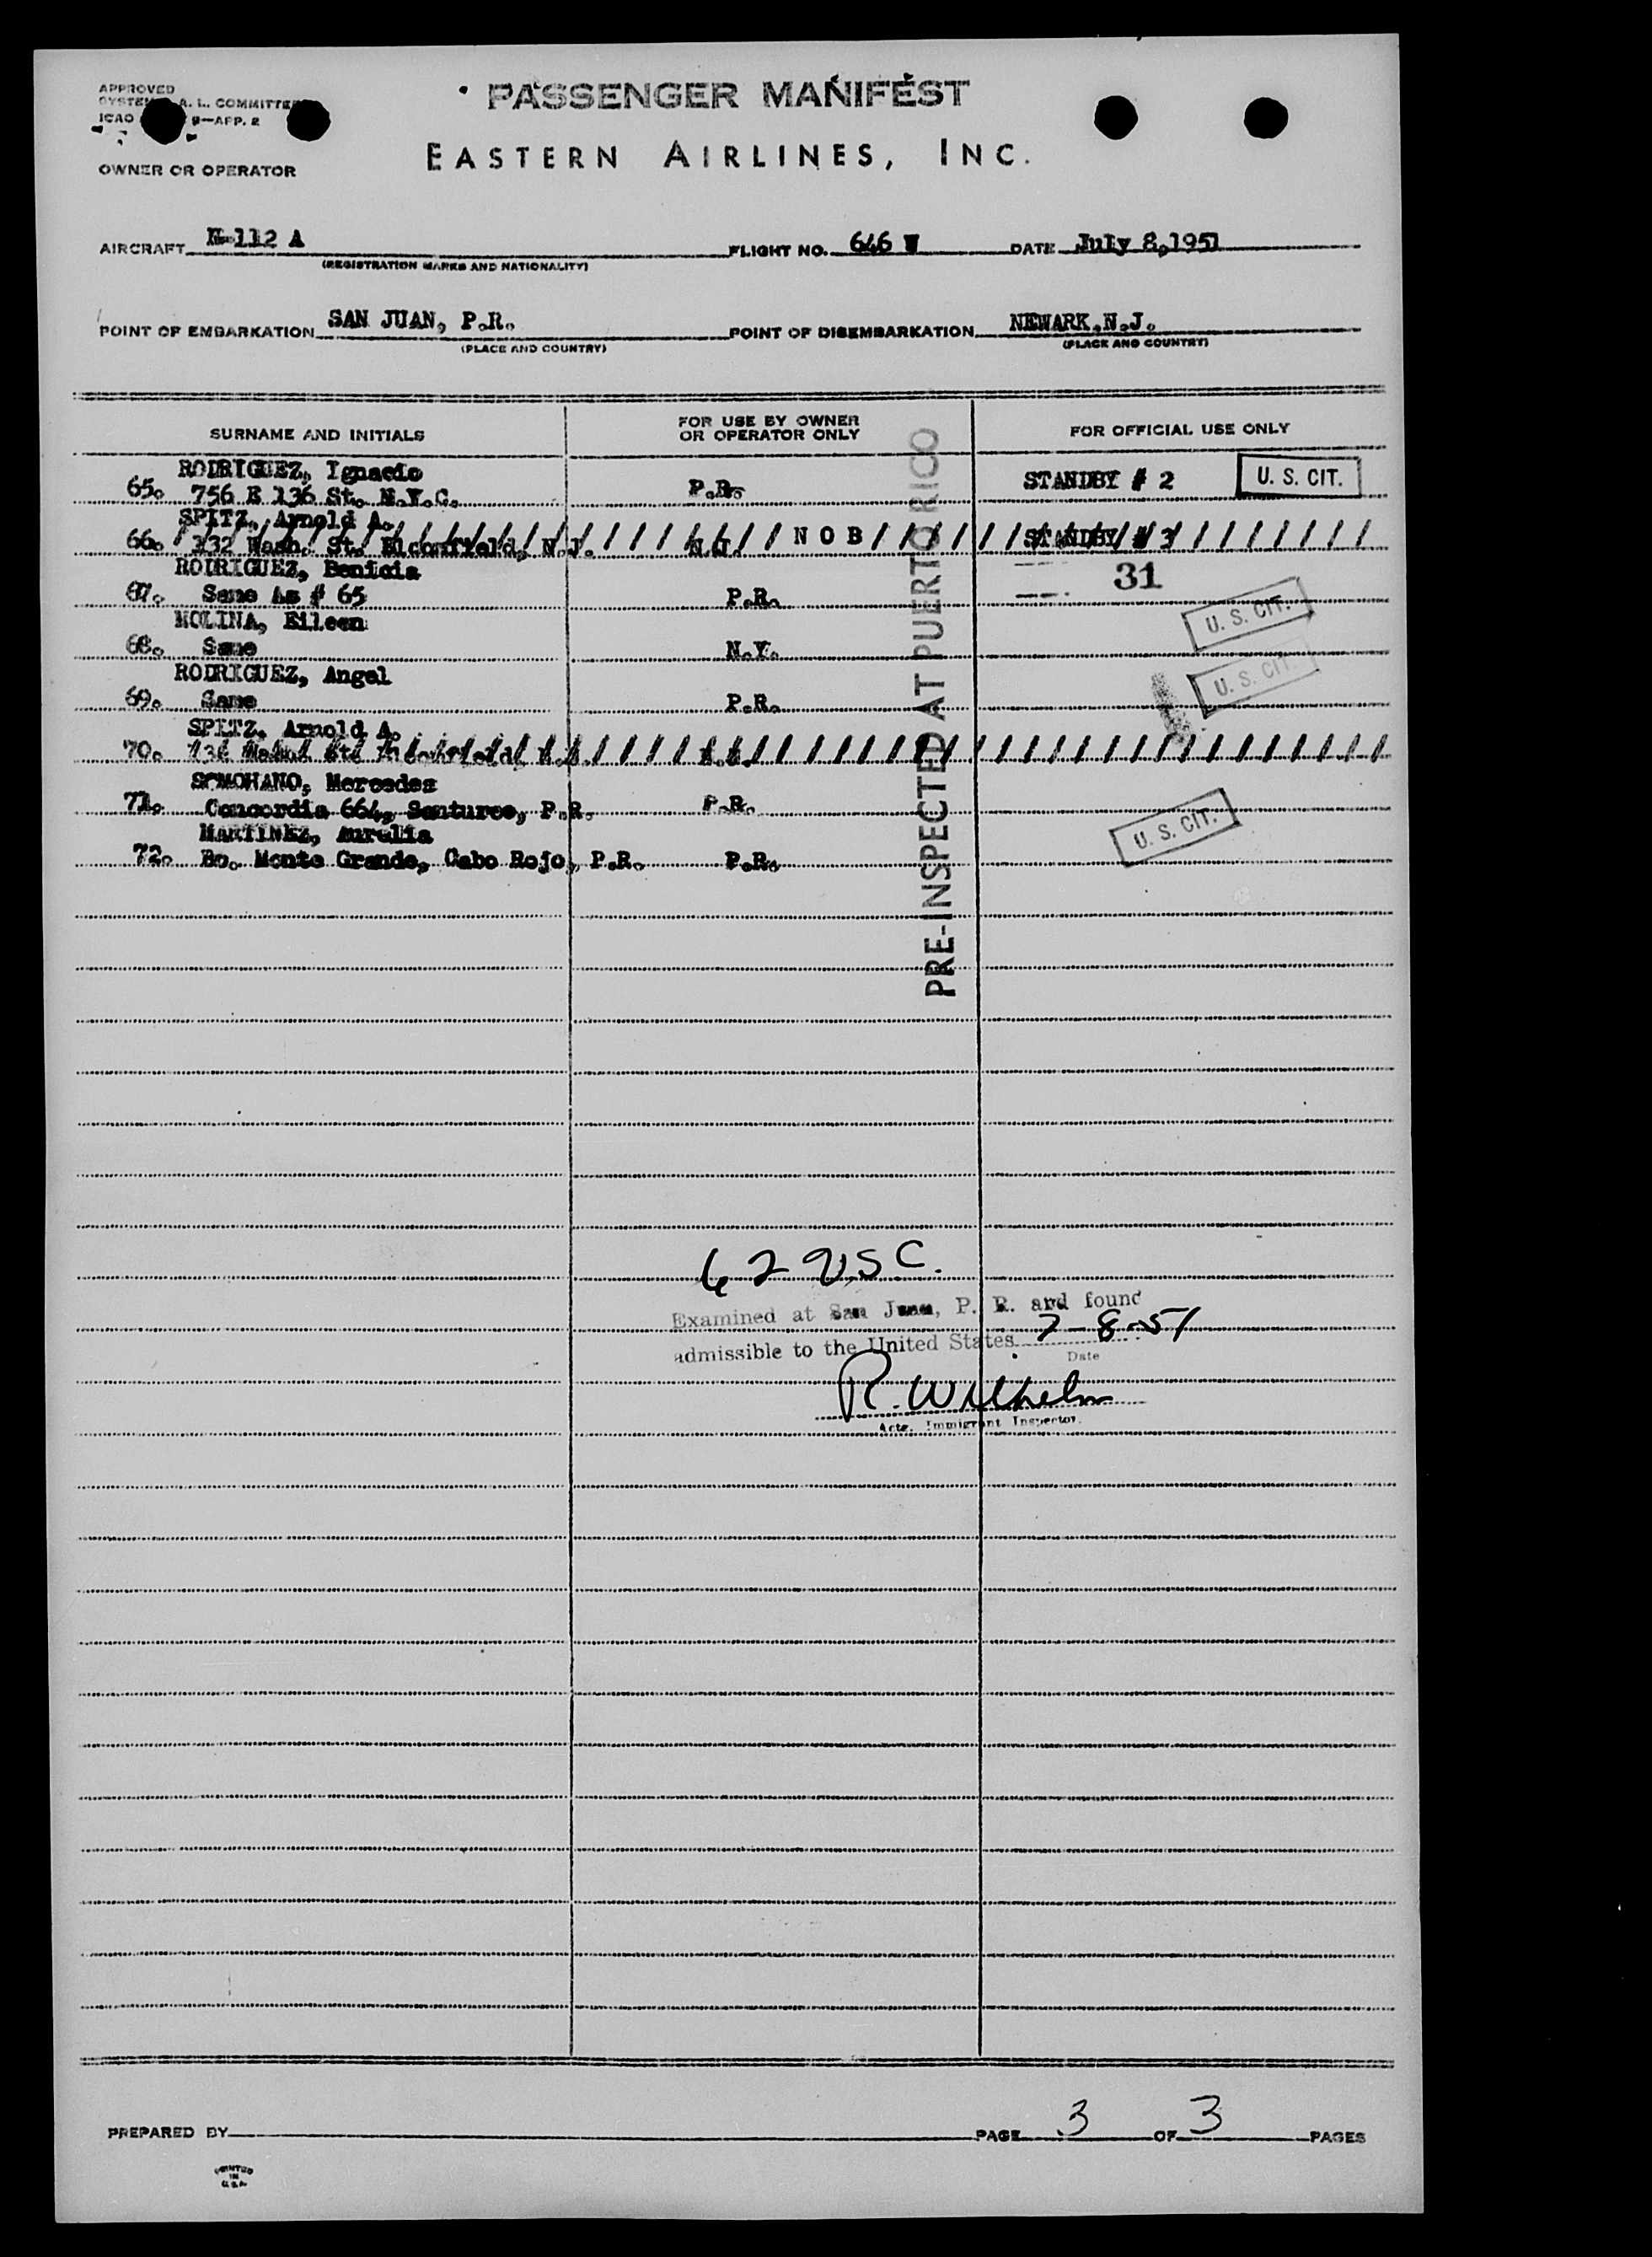 APPROVED
A. L. COMMITTEE
ICAO 9—APP. 2
PASSENGER MANIFEST
EASTERN AIRLINES, INC.
OWNER OR OPERATOR
AIRCRAFT N-112 A FLIGHT NO. 646 DATE July 8, 1951
(REGISTRATION MARKS AND NATIONALITY)
POINT OF EMBARKATION SAN JUAN, P.R. POINT OF DISEMBARKATION NEWARK, N.J.
(PLACE AND COUNTRY) (PLACE AND COUNTRY)
SURNAME AND INITIALS FOR USE BY OWNER OR OPERATOR ONLY FOR OFFICIAL USE ONLY
RODRIGUEZ, Ignacio
65. 756 E 136 St. N.Y.C. P.R. STANDBY # 2 U. S. CIT.
SPITZ, Arnold A.
66. 332 Wash. St. Bloomfield, N.J. N.J. NOB STANDBY # 3
RODRIGUEZ, Benicia
67. Same As # 65 P.R. 31 U. S. CIT.
MOLINA, Eileen
68. Same N.Y. U. S. CIT.
RODRIGUEZ, Angel
69. Same P.R.
SPITZ, Arnold A.
70.
SOMOHANO, Mercedes
71. Concordia 664, Santurce, P.R. P.R. U. S. CIT.
MARTINEZ, Aurelia
72. Bo. Monte Grande, Cabo Rojo, P.R. P.R.
PRE-INSPECTED AT PUERTO RICO
62 USC.
Examined at San Juan, P. R. and found
admissible to the United States 7-8-51
Date
R. Wilhelm
Actg. Immigrant Inspector.
PREPARED BY PAGE 3 OF 3 PAGES
PRINTED
IN
U.S.A.